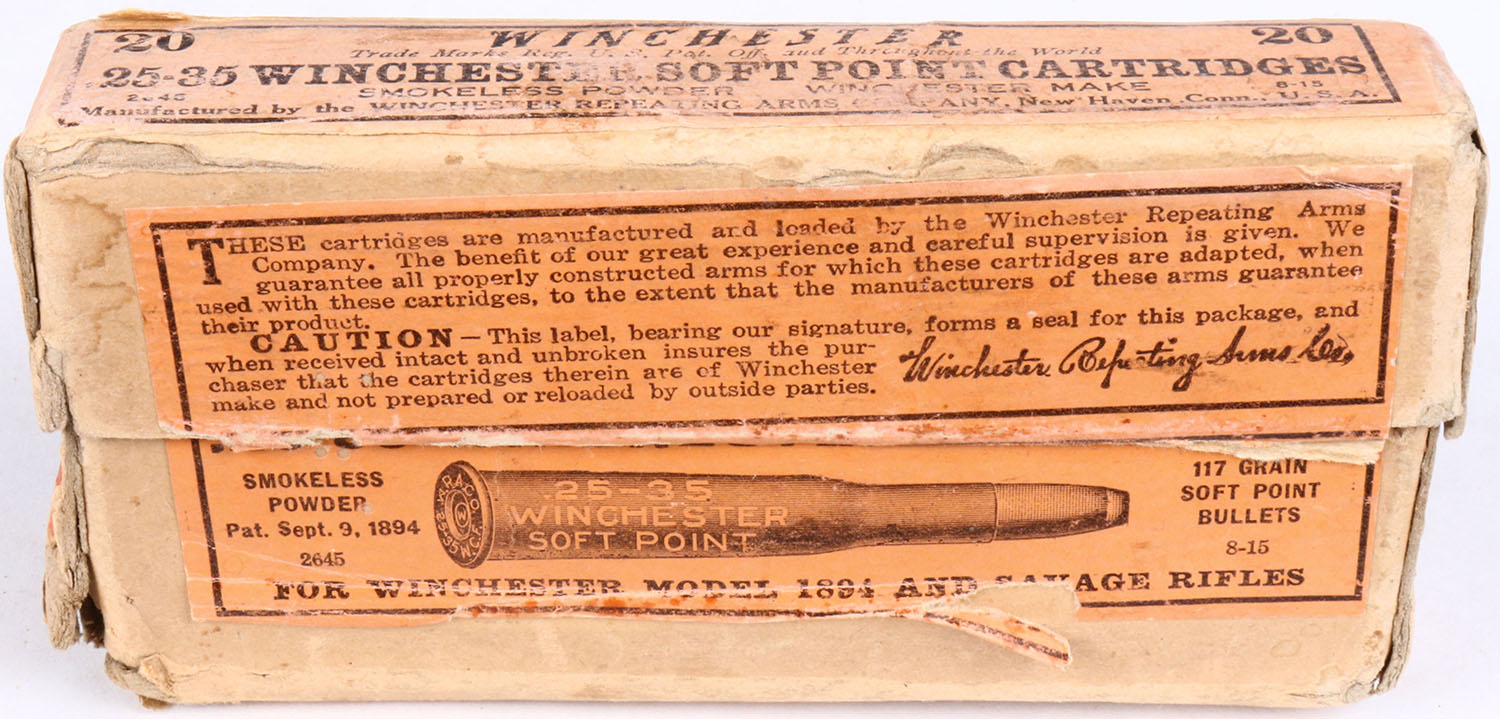 20 WINCHESTER 20
Trade Marks Reg. U. S. Pat. Off. and Throughout the World
.25-35 WINCHESTER SOFT POINT CARTRIDGES
SMOKELESS POWDER WINCHESTER MAKE
2645 8-15
Manufactured by the WINCHESTER REPEATING ARMS COMPANY, New Haven, Conn., U.S.A.
THESE cartridges are manufactured and loaded by the Winchester Repeating Arms
Company. The benefit of our great experience and careful supervision is given. We
guarantee all properly constructed arms for which these cartridges are adapted, when
used with these cartridges, to the extent that the manufacturers of these arms guarantee
their product.
CAUTION — This label, bearing our signature, forms a seal for this package, and
when received intact and unbroken insures the pur-
chaser that the cartridges therein are of Winchester
make and not prepared or reloaded by outside parties.
Winchester Repeating Arms Co.
SMOKELESS
POWDER
Pat. Sept. 9, 1894
2645
W.R.A.CO.
W
25-35 W.C.F.
.25-35
WINCHESTER
SOFT POINT
117 GRAIN
SOFT POINT
BULLETS
8-15
FOR WINCHESTER MODEL 1894 AND SAVAGE RIFLES